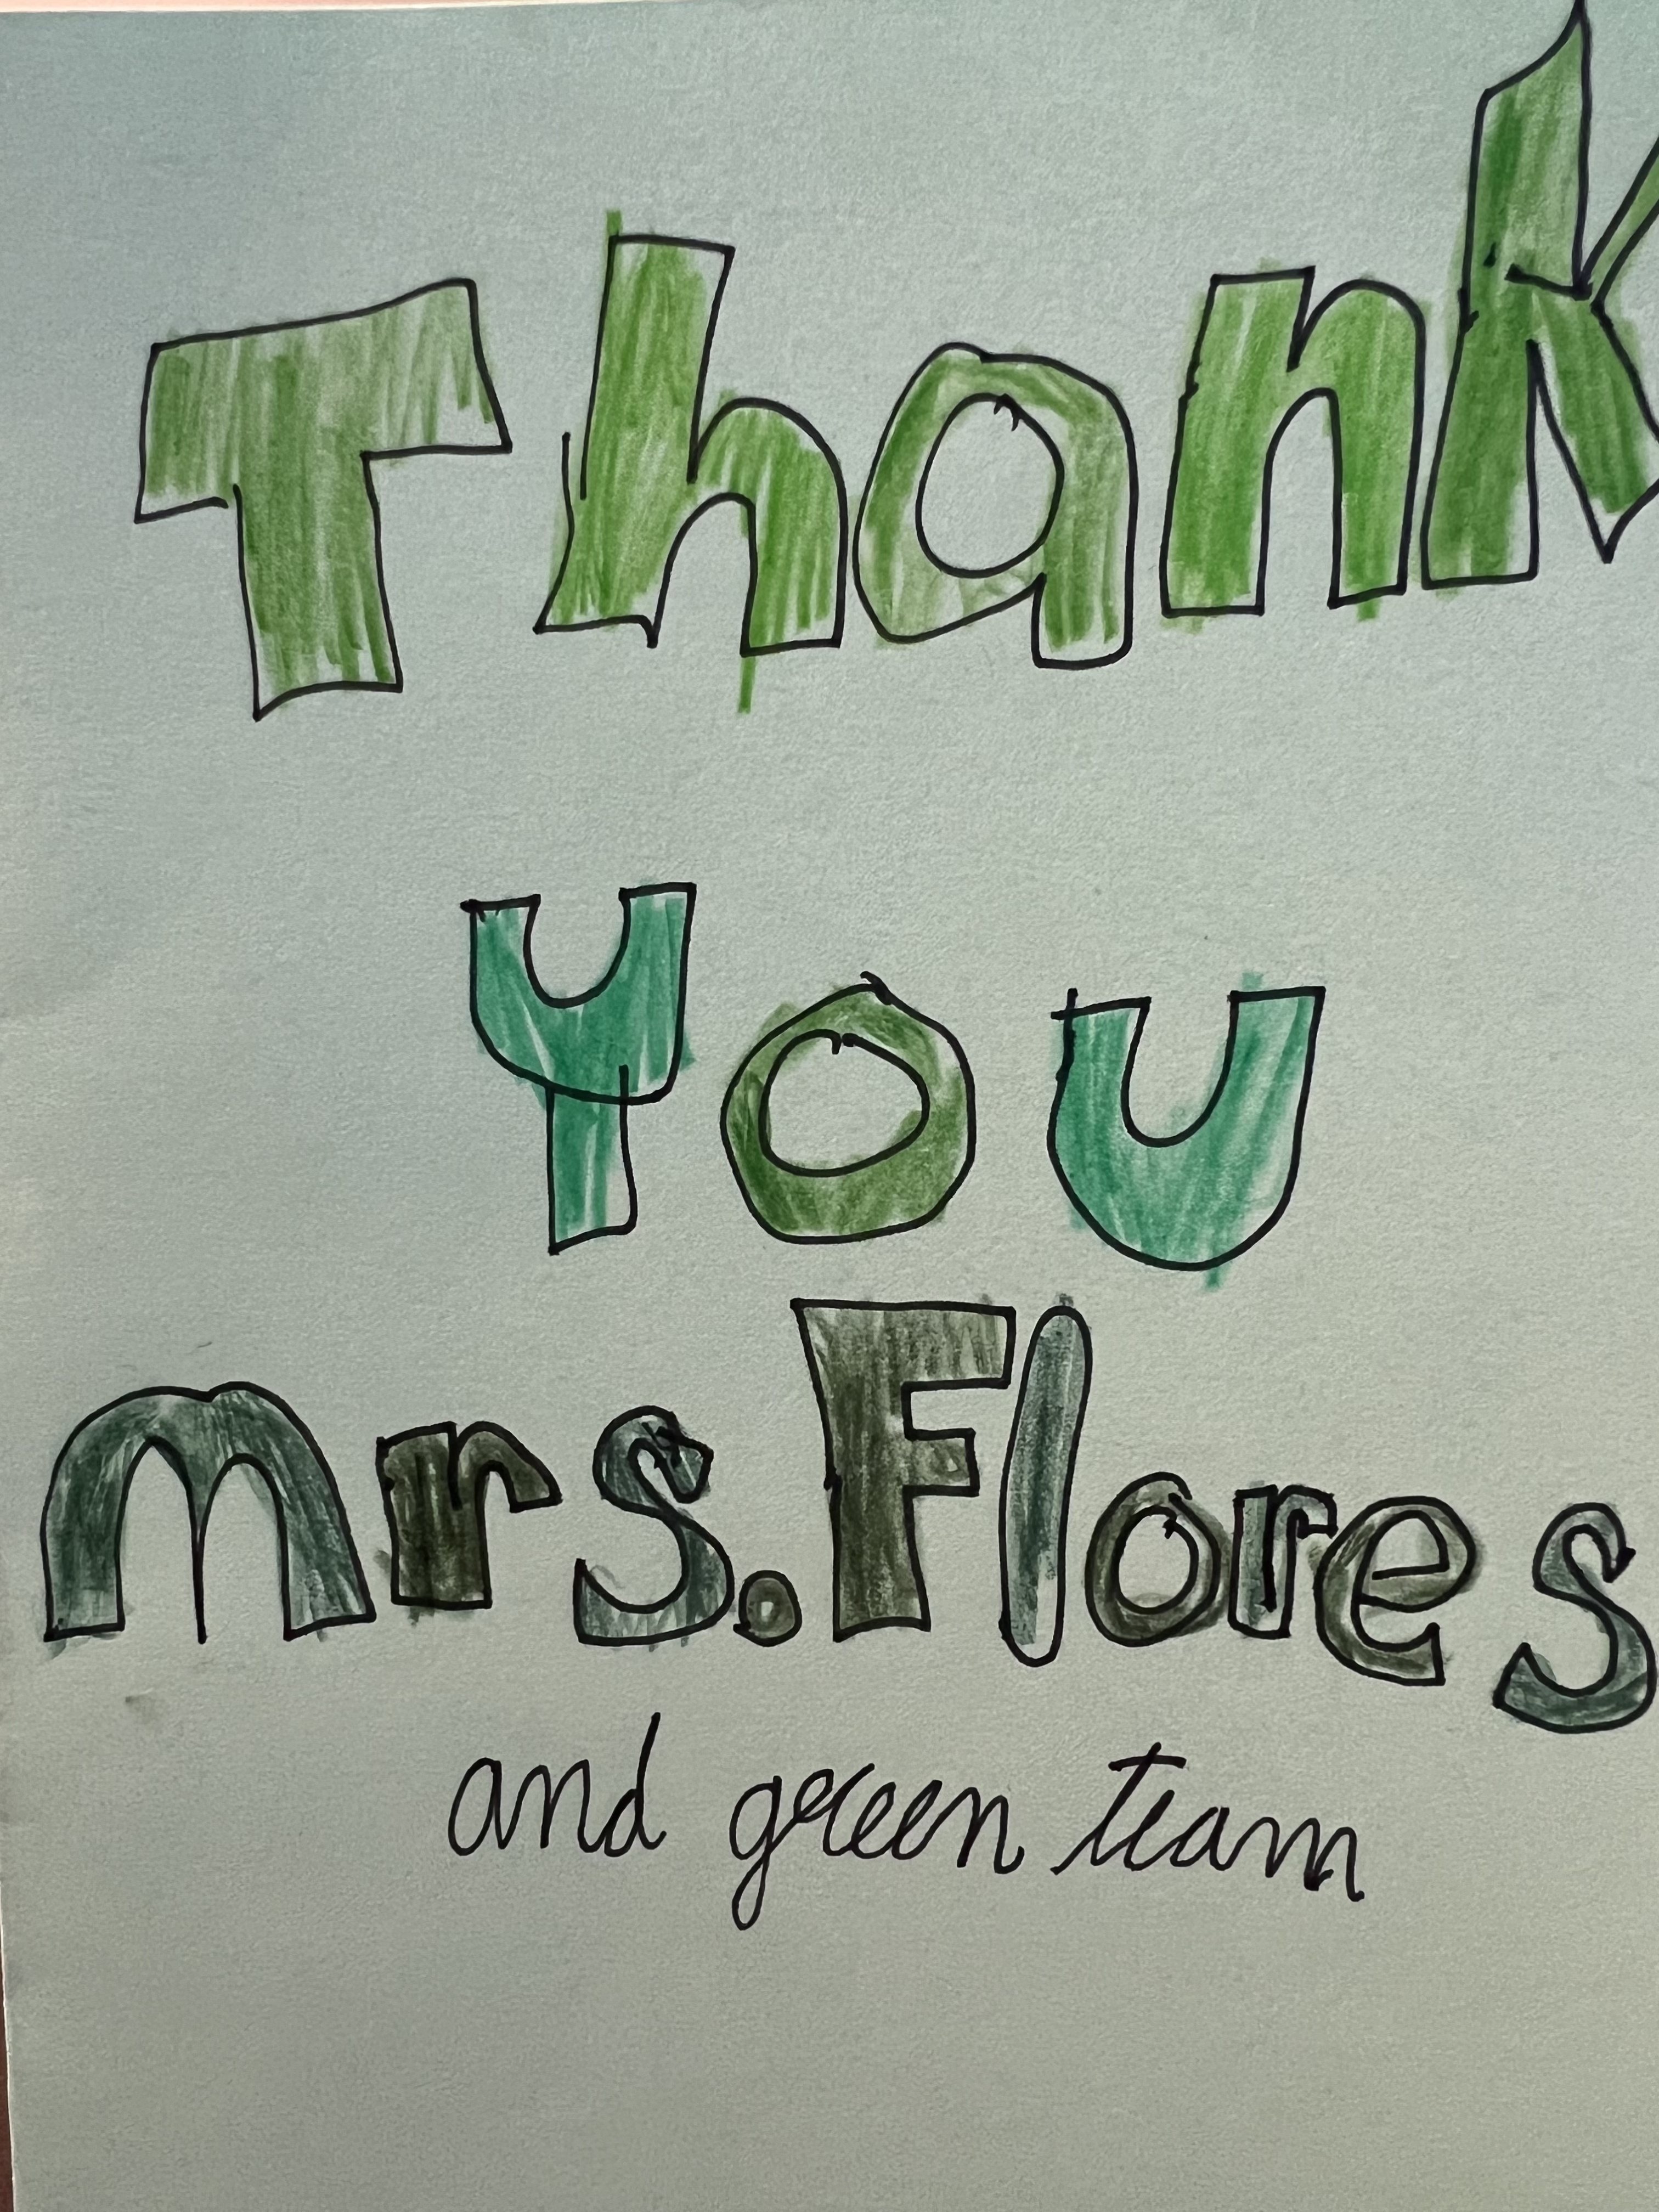 Thank
You
Mrs. Flores
and green team